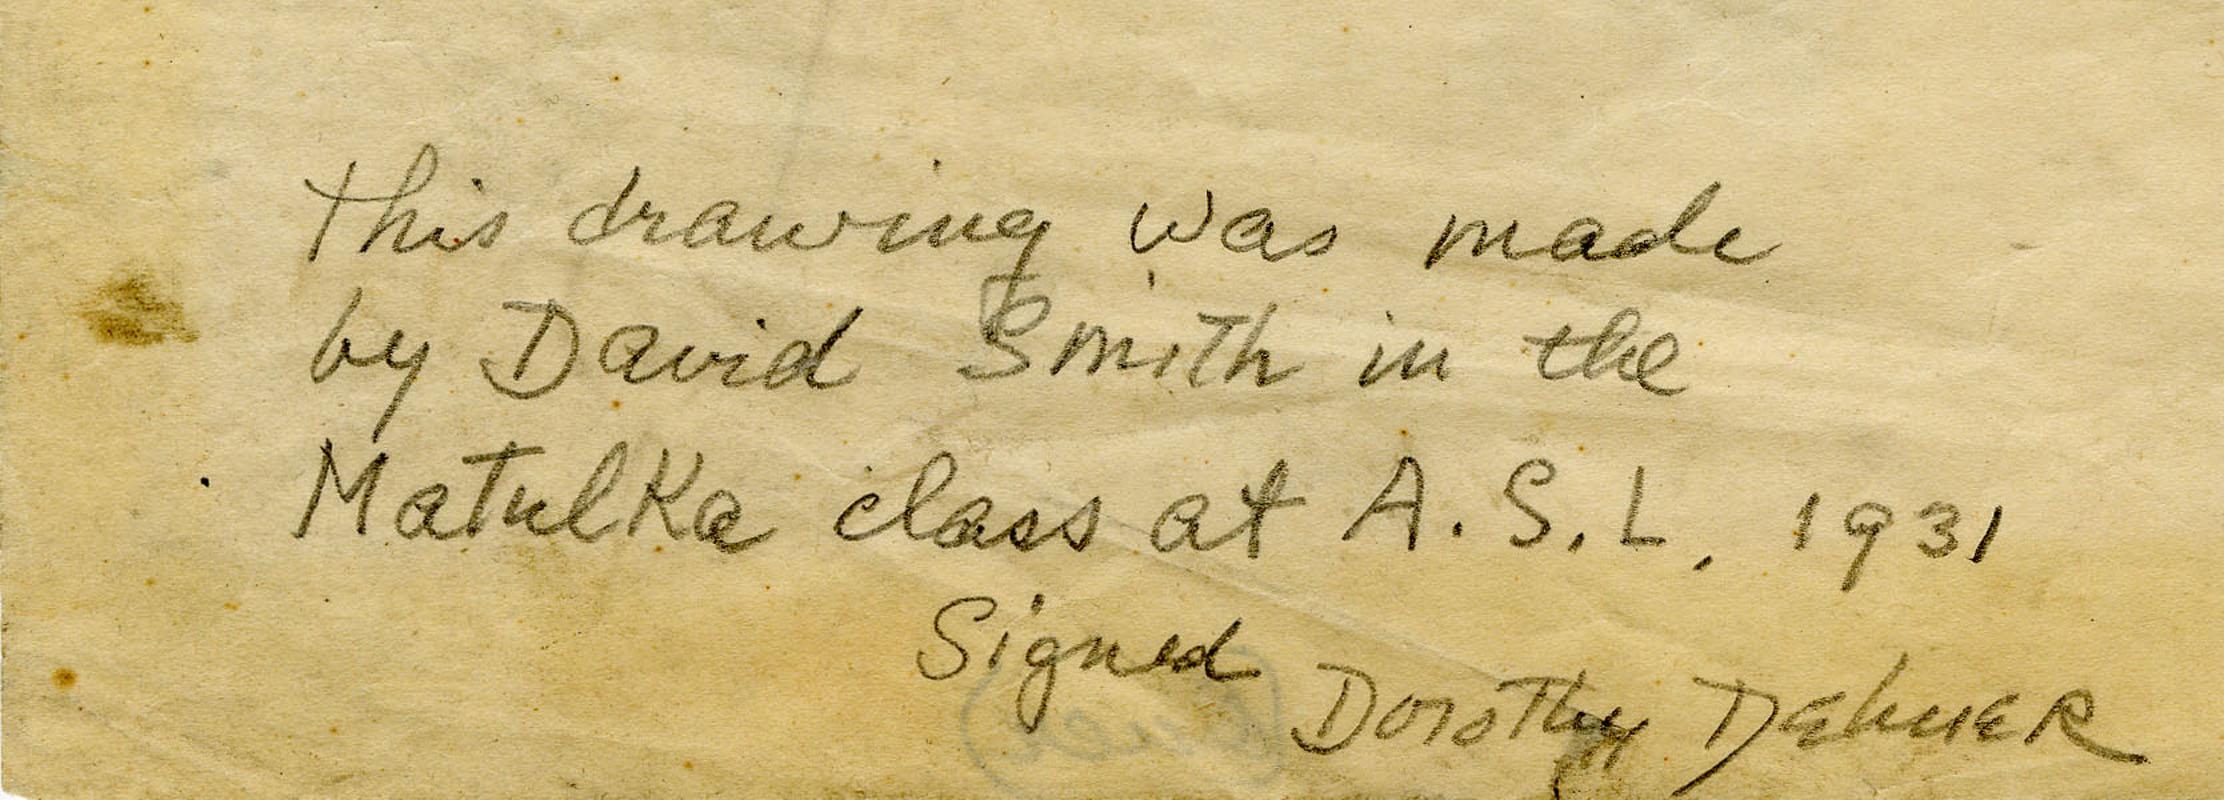 This drawing was made
by David Smith in the
Matulka class at A.S.L. 1931
Signed
Dorothy Dehner